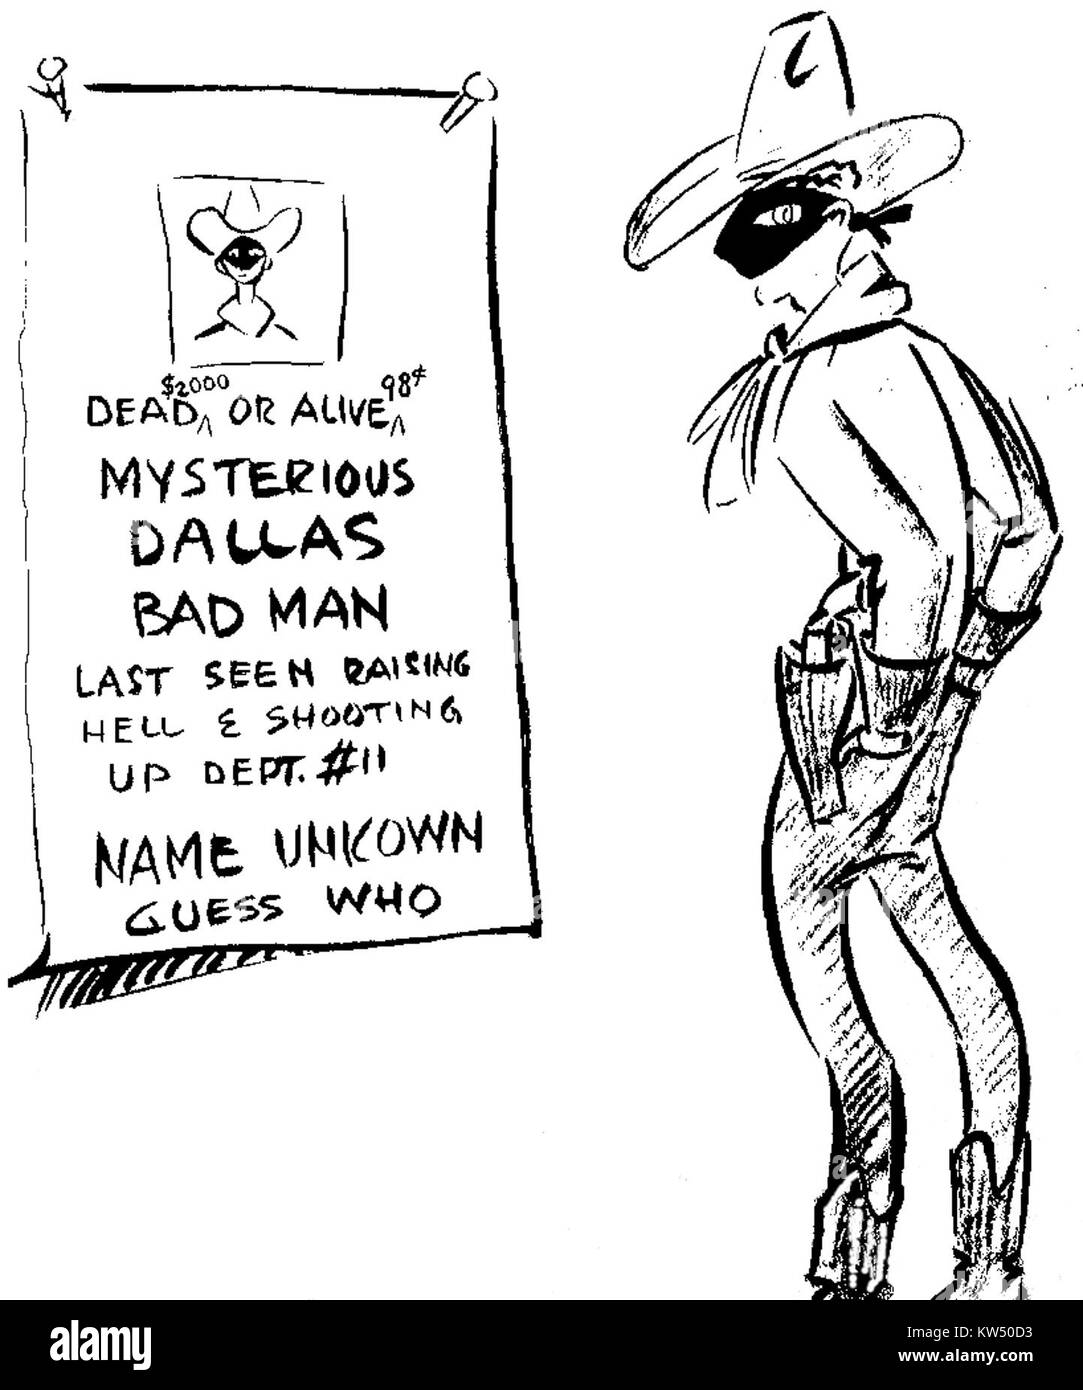 $2000 98¢
DEAD ^ OR ALIVE ^
MYSTERIOUS
DALLAS
BAD MAN
LAST SEEN RAISING
HELL & SHOOTING
UP DEPT. #11
NAME UNKOWN
GUESS WHO
alamy
Image ID: KW50D3
www.alamy.com